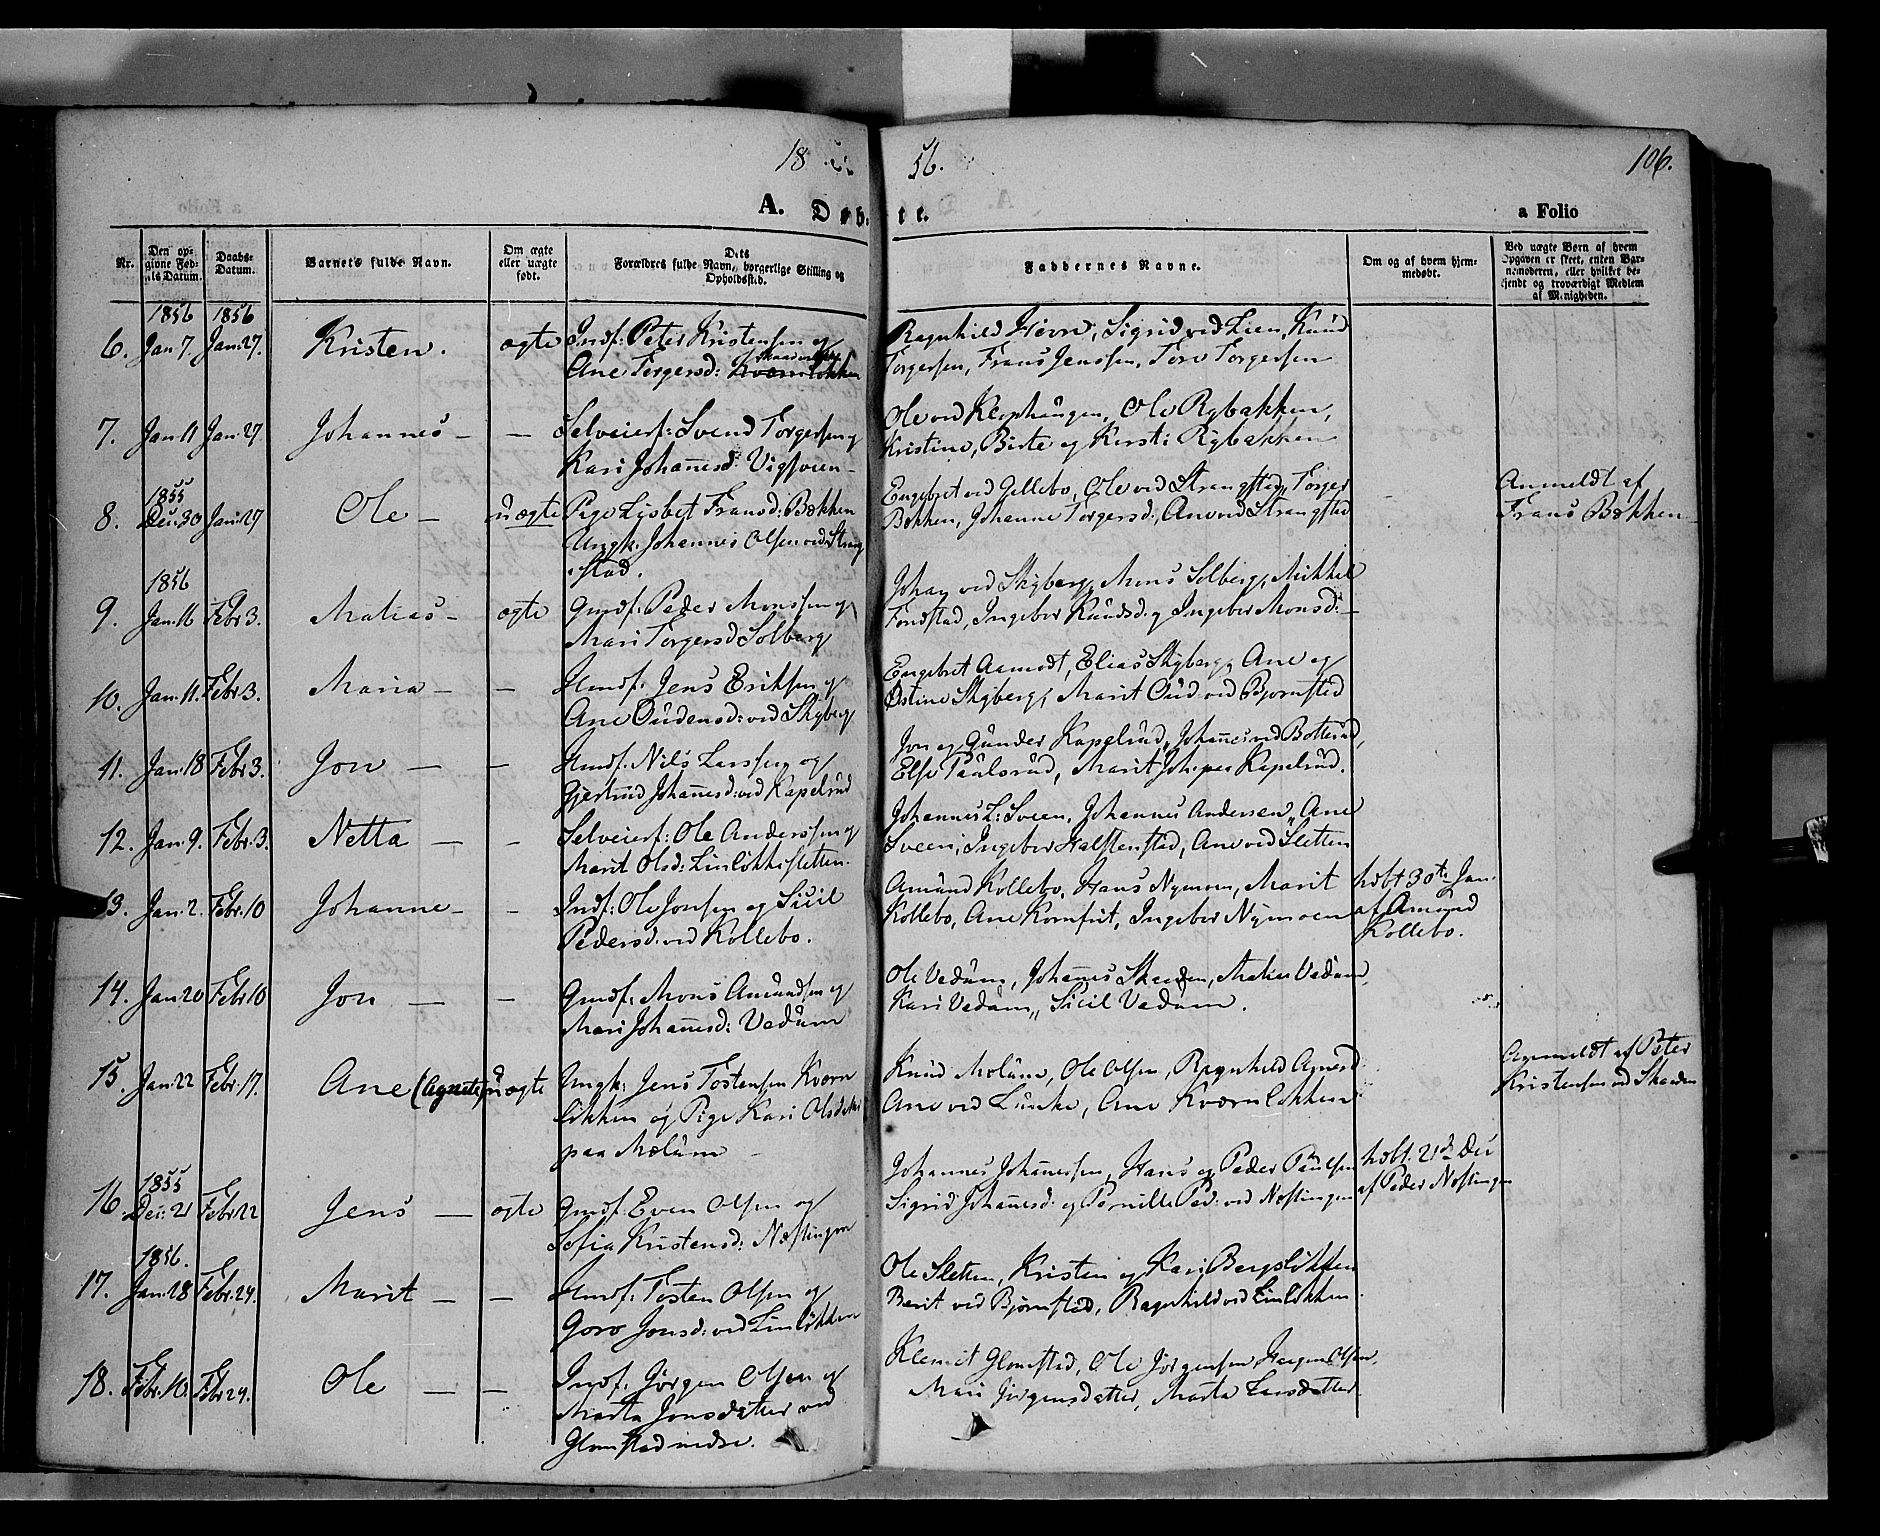 18 56. 106.
A. Døbte. a Folio
Nr.
Den opgivne Fødsels Datum.
Daabs-Datum.
Barnets fulde Navn.
Om ægte eller uægte født.
Dets Forældres fulde Navn, borgerlige Stilling og Opholdssted.
Faddernes Navne.
Om og af hvem hjemmedøbt.
Ved uægte Børn af hvem Opgaven er skeet, enten Barnemoderen, eller hvilket bekjendt og troværdigt Medlem af Menigheden.
1856 1856
6. Jan 7. Jan: 27. Kristen. ægte Indf: Peter Kristensen og Ragnhild, Sigrid ved Lien, Knud
Ane Torgersd: Torgersen, Frans Jenssen, Tore Torgersen
7. Jan 11 Jan: 27 Johannes — — Selveierf: Svend Torgersen og Ole ved Klophaugen, Ole Rybakken,
Kari Johanesd: Vigsveen Kristine, Birte og Kersti Rybakken
1855
8. Dec: 30 Jan: 27 Ole — uægte Pige Lisbet Fransd: Bækken Engebret ved Jellebo, Ole ved Strangstad, Torger Anmeldt af
Ungk: Johannes Olsen ved Strang Bækken, Johanne Torgersd:, Ane ved Strangstad Frans Bækken
stad.
1856
9. Jan. 16 Febr 3. Matias — ægte Gmdf: Peder Monssen og Johan ved Skyberg, Mons Solberg, Mikkel
Mari Torgersd Solberg Fondstad, Ingebor Knudsd: og Ingebor Monsd:
10. Jan. 11. Febr 3. Maria — — Hmdf: Jens Eriksen og Engebret Aamodt, Elias Skyberg, Ane og
Ane Oudensd: ved Skyberg Østine Skyberg, Marit Oud ved Bjørnstad
11. Jan. 18 Febr 3. Jon — — Hmdf: Nils Larssen og Jon og Gunder Kapelrud, Johannes ved Botterud,
Gjertrud Johanesd: ved Kapelrud Else Paulsrud, Marit Kapelrud.
12. Jan. 9. Febr. 3. Netta — — Selveierf: Ole Anderssen og Johannes L: Sveen, Johannes Andersen, Ane
Marit Olsd: Linløkkesletten. Sveen, Ingebor Halstenstad, Ane ved Sletten
13. Jan. 2. Febr. 10 Johanne — — Indf: Ole Jonsen og Sicil Amund Kollebo, Hans Nymoen, Marit hdbt 30te Jan.
Pedersd: ved Kollebo. Kollebo, Ane, Ingebor Nymoen af Amund
Kollebo.
14. Jan 20 Febr 10 Jon — — Gmdf: Mons Amundsen og Ole Vedum, Johannes, Matias Vedum,
Mari Johanesd: Vedum Kari Vedum, Sicil Vedum.
15. Jan: 22 Febr 17. Ane (Agnete) uægte Ungk: Jens Tostensen Kværn Knud Mælum, Ole Olsen, Ragnhild Agnesd: Anmeldt af Peter
løkken og Pige Kari Olsd: Ane ved Lunke, Ane Kværnløkken Kristensen ved Skaaden
paa Mælum
1855
16. Dec: 21 Febr 22 Jens — ægte Gmdf: Even Olsen og Johannes Johannessen, Hans og Peder Paulsen hdbt. 21de Dec
Sofia Kristensd: Næstingen Sigrid Johanesd: og Pernille Ped: ved Næstingen af Peder Næstingen
1856.
17. Jan. 28 Febr. 24. Marit — — Hmdf: Tosten Olsen og Ole Sletten, Kristen og Kari Bergsløkken
Goro Jonsd: ved Linløkken Berit ved Bjørnstad, Ragnhild ved Linløkken
18. Febr. 10. Febr 24. Ole — — Indf: Jørgen Olsen og Klemet Glomstad, Ole Jørgensen, Olsen,
Marta Jonsdatter ved Mari Jørgensdatter, Marta Larsdatter
Glomstad nedre.